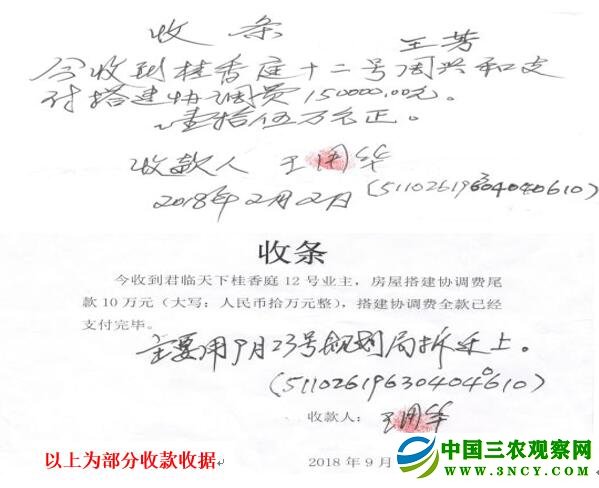 收条
王芳
今收到桂香庭十二号周兴和支
付搭建协调费150000.00元。
壹拾伍万元正。
收款人 王国华
2018年2月2日 (511026196304040610)
收条
今收到君临天下桂香庭12号业主，房屋搭建协调费尾
款10万元（大写：人民币拾万元整），搭建协调费全款已经
支付完毕。
主要用9月23号规划局拆迁上。
(511026196304040610)
收款人：王国华
2018年9月
以上为部分收款收据
中国三农观察网
WWW.3NCY.COM